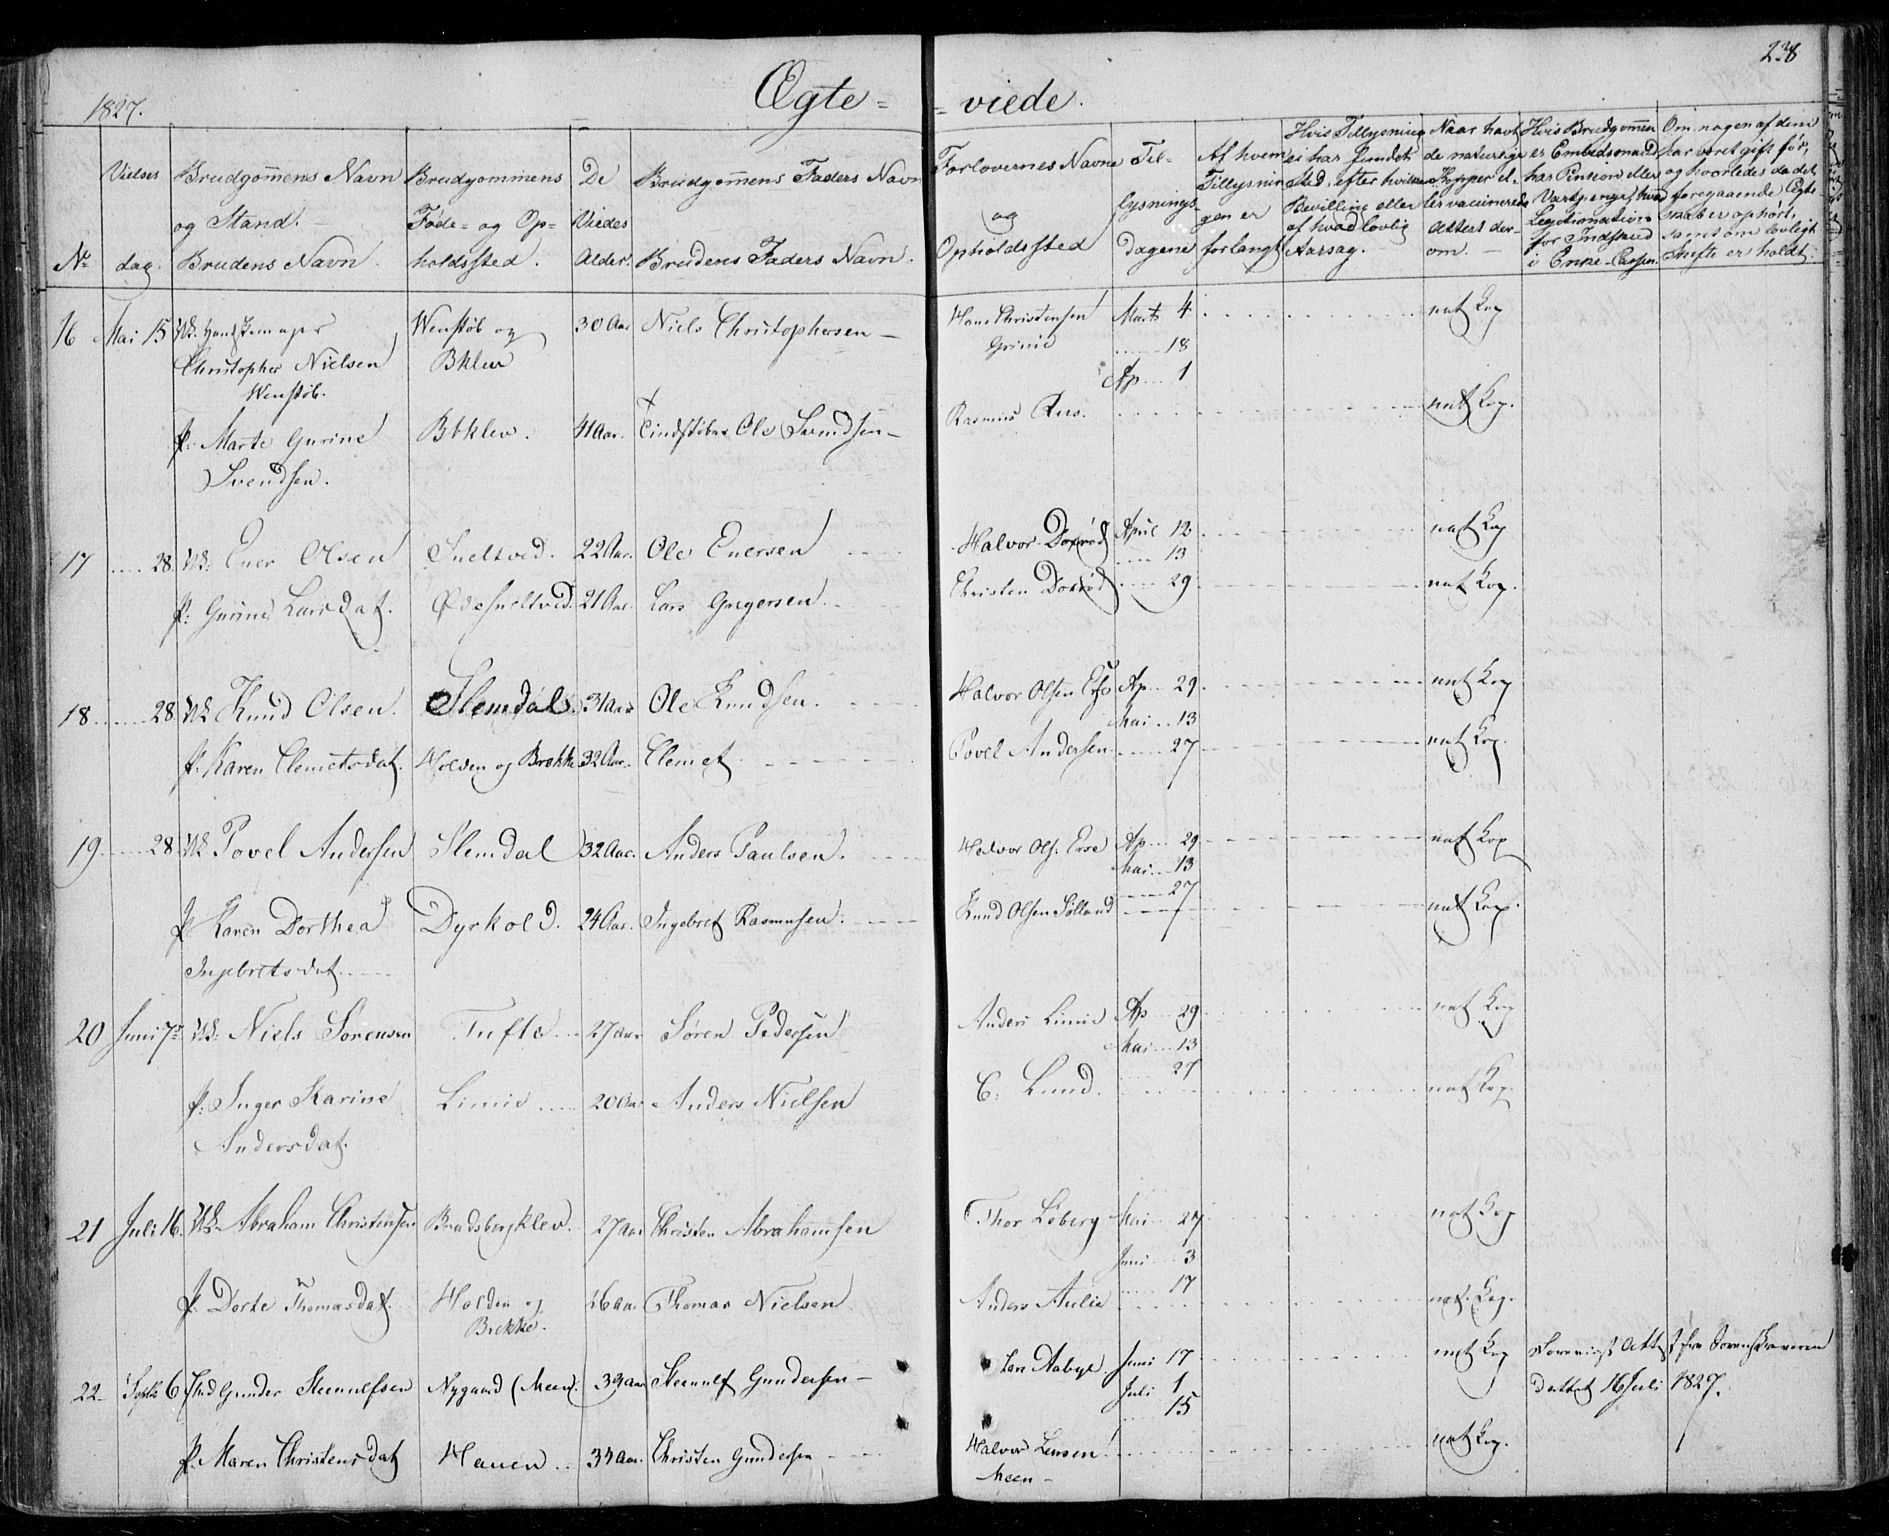 238
1827.
Ægte = = viede.
No
Vielses
dag.
Brudgommens Navn
og Stand. —
Brudens Navn.
Brudgommens
Føde- og Op=
holdssted.
De
Viedes
Alder.
Brudgommens Faders Navn
Brudens Faders Navn.
Forlovernes Navne
og
Opholdssted
Til-
lysnings
Dagene
Af hvem
Tillysnin
gen er
forlangt
Hvis Tillysning
ei har fundet
Sted, efter hvilken
Bevilling eller
af hvad lovlig
Aarsag.
Naar havt
de naturlige
Kopper el-
ler vaccinerede
Attest der-
om. —
Hvis Brudgommen
er Embedsmand
har Pension eller
Vartpenge, hvad
Legitimation
for Indskud
i Enke-Cassen.
Om nogen af dem
har været gift før,
og hvorledes da det
foregaaende Ægte
skab er ophørt,
samt om lovligt
Skifte er holdt.
16 Mai 15
Christopher Nielsen
Wenstøb.
Wenstøb og
Bklev
30 Aar
Niels Christophersen —
Hans Christensen
Grinie
Marts 4
18
Ap. 1
nat Kop
P: Marte Gurine
Svendsen.
Bbklev.
41 Aar.
Ole Svendsen —
Rasmus
nat Kop.
17 28 UK: Ener Olsen Sneltved. 22 Aar. Ole Enersen
Halvor Doxrød April 12
13
nat Kop
P: Gurine Larsdat. Ødesneltved. 21 Aar. Lars Gregersen.
Christen Doxrød 29 nat Kop.
18 28 UK Knud Olsen. Slemdal 31 Aar Ole Knudsen.
Halvor Olsen Ap. 29 nat Kop
Mai 13
P: Karen Clemetsdat. Holden og Brekke 32 Aar. Clemet
Povel Andersen 27 nat Kop.
19 28 UK Povel Andersen Slemdal 32 Aar. Anders Paulsen.
Halvor Ols. Erse Ap. 29 nat Kop
Mai 13
27
P Karen Dorthea Dyrkold. 24 Aar. Ingebret Rasmusen.
Ingebretsdat.
Knud Olsen Sølland nat Kop.
20 Juni 7de UK: Niels Sorensen Tufte 27 aar Søren Pedersen
Anders Limie Ap 29 nat Kop
Mai 13
27
P: Inger Karine Limie 20 Aar Anders Nielsen
Andersdat.
C. Lund. nat Kop.
21 Juli 16. UK. Abraham Christensen Bradsbergklev. 27 Aar Christen Abrahamsen
Thor Løberg Mai 27 nat Kop
Juni 3
17
P. Dorte Thomasdat. Holden og
Brekke.
26 aar Thomas Nielsen.
Anders Aulie nat. Kop.
22 6 Gunder Steenulfsen Nygaard (Meen). 39 aar Steenulf Gundersen —
Lars Aabye Juni 17
Juli 1
15
nat Kop
Attest fra Sorenskriveren
dattet 16 Juli 1827.
P. Maren Christensdat Hauen 33 Aar. Christen Gundersen
Halvor Jensen
Meen —
nat Kop.